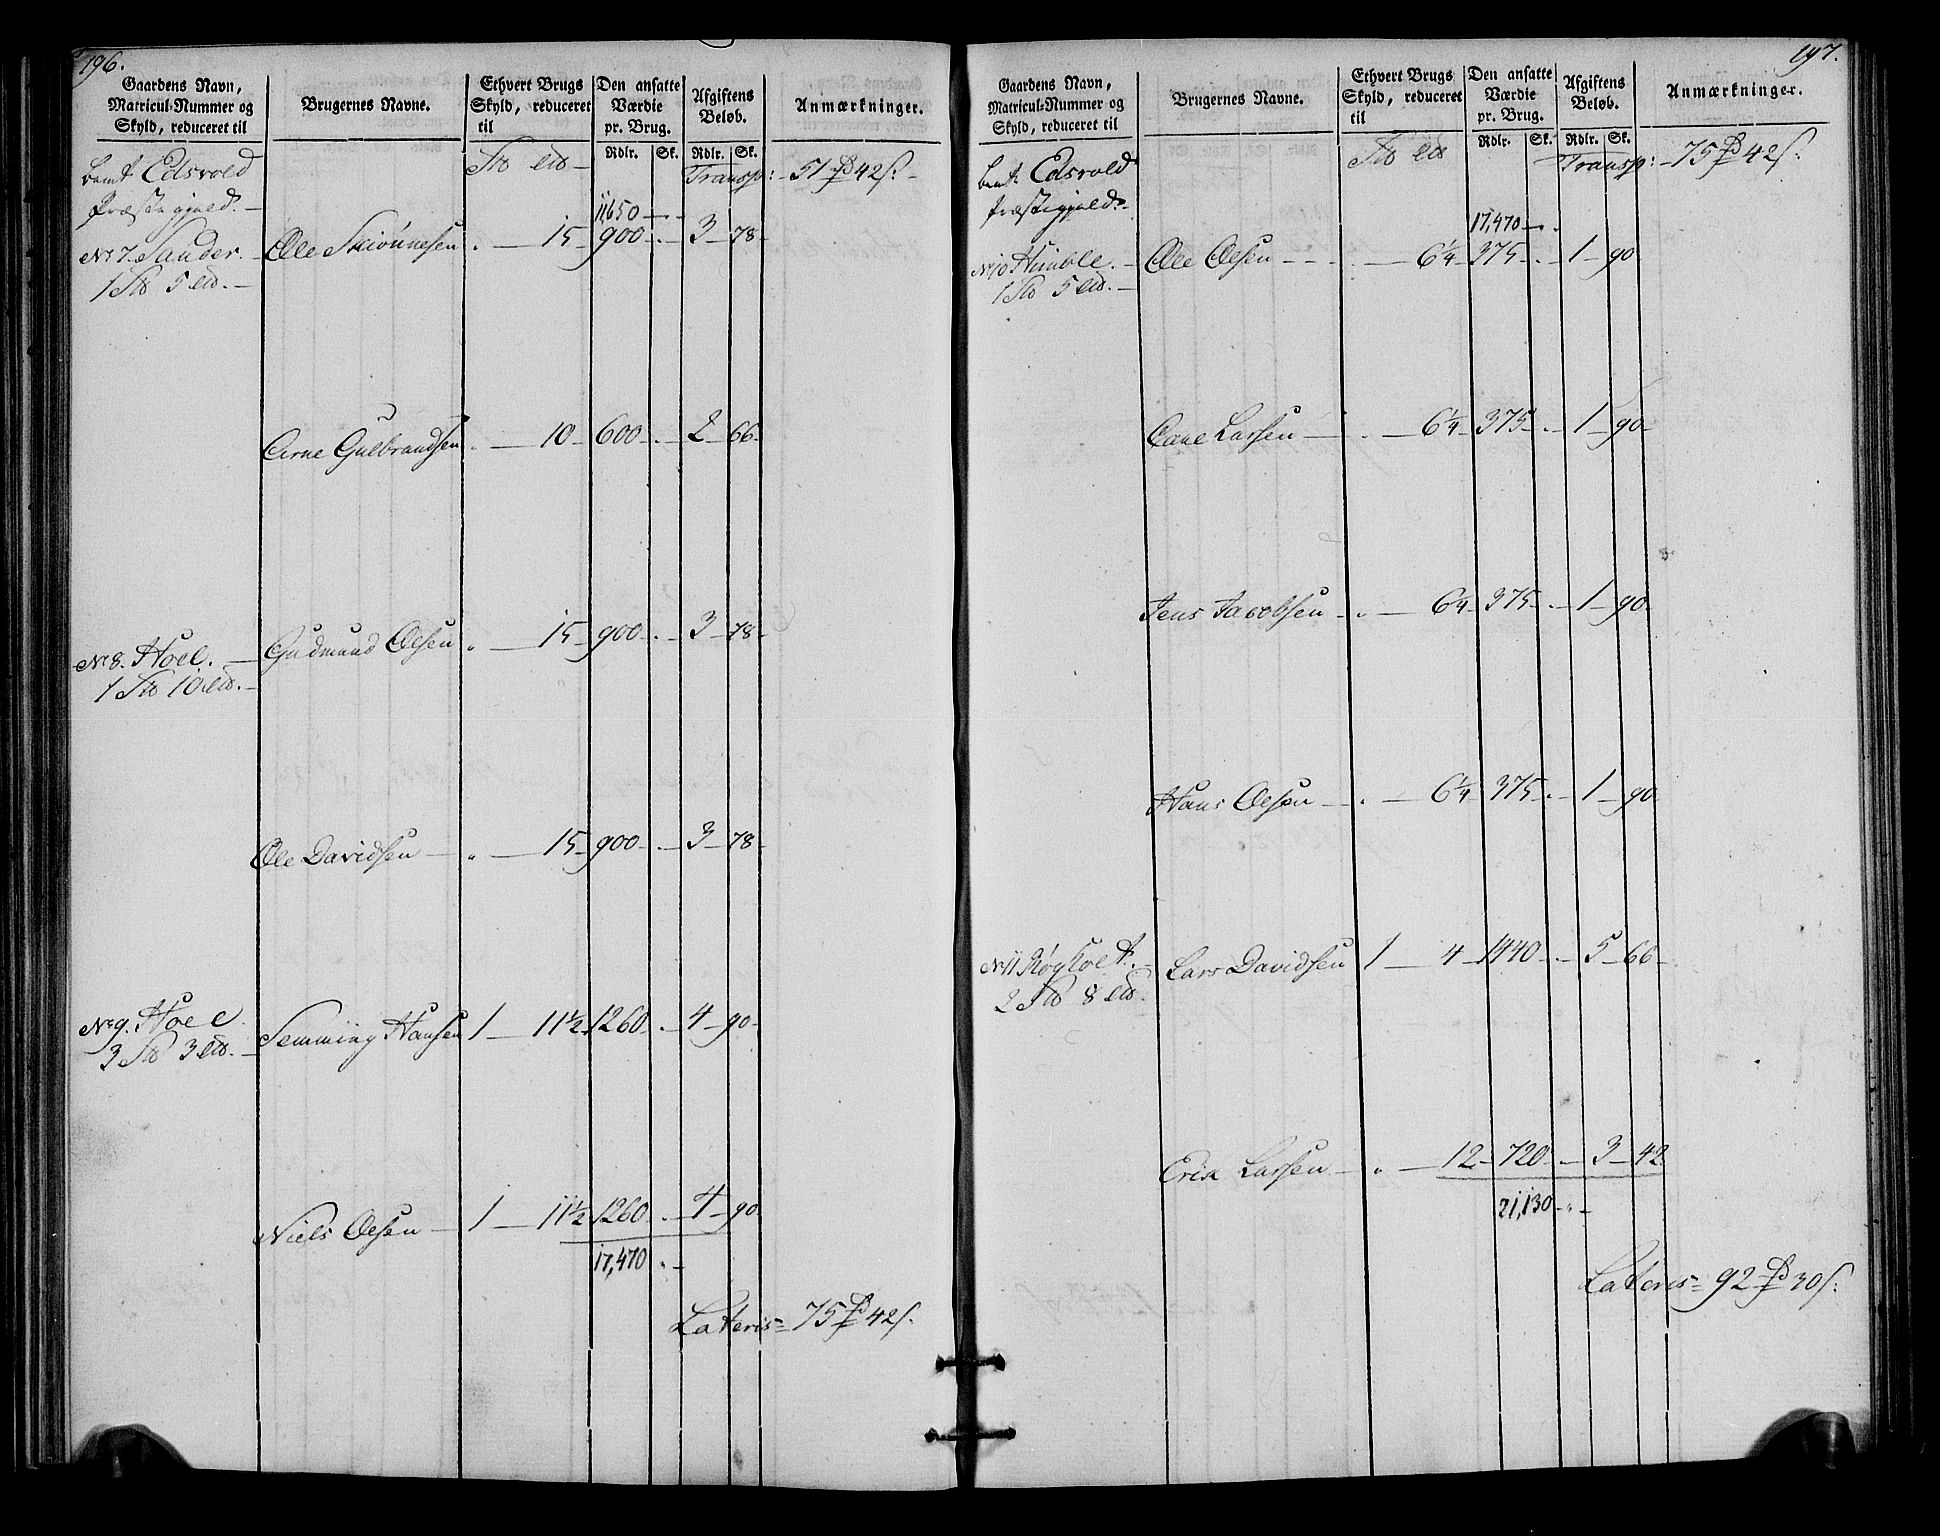 196.
Gaardens Navn, Matricul-Nummer og Skyld, reduceret til
Brugernes Navne.
Ethvert Brugs Skyld, reduceret til
Den ansatte Værdie pr. Brug.
Afgiftens Beløb.
Anmærkninger.
Rdlr. Sk. Rdlr. Sk.
Edsvold Transp: 51 42
Præstegjeld.
11,650
No 7. Sander. Ole Skiönnesen 15 900 3 78
1 5
Arne Gulbrandsen 10 600 2 66
No 8. Hoel. Gudmund Olsen 15 900 3 78
1 10
Ole Davidsen 15 900 3 78
No 9. Hoel Semming Hansen 1 11½ 1260 4 90
3 3
Niels Olsen 1 11½ 1260 4 90
17,470
Lateris 75 42
197.
Gaardens Navn, Matricul-Nummer og Skyld, reduceret til
Brugernes Navne.
Ethvert Brugs Skyld, reduceret til
Den ansatte Værdie pr. Brug.
Afgiftens Beløb.
Anmærkninger.
Rdlr. Sk. Rdlr. Sk.
Edsvold Transp: 75 42
Præstegjeld.
17,470
No 10 Himble. Ole Olsen 6¼ 375 1 90
1 5
Larsen 6¼ 375 1 90
Jens Jacobsen 6¼ 375 1 90
Hans Olsen 6¼ 375 1 90
No 11 Lars Davidsen 1 4 1440 5 66
2 8
Erik Larsen 12 720 3 42
21,130
Lateris 92 30